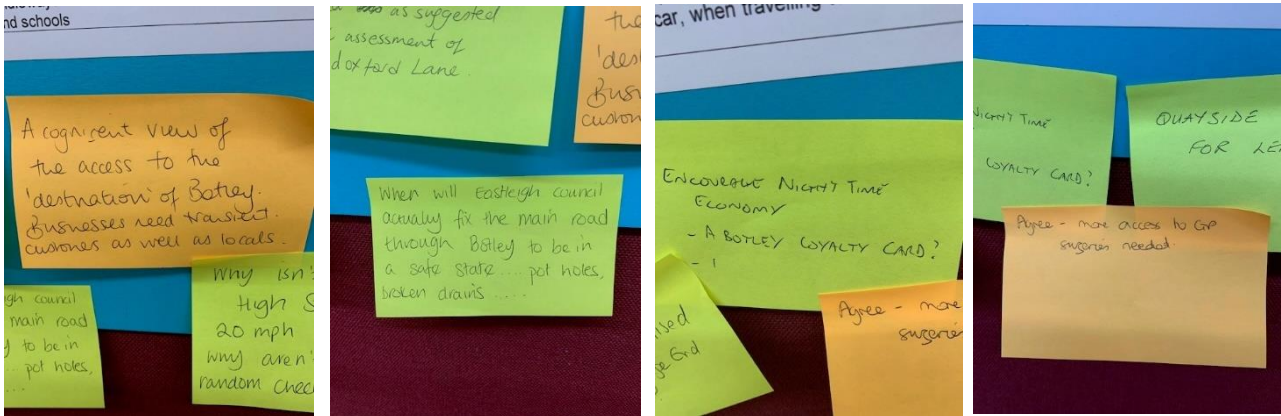 nd schools
A cognicent view of
the access to the
'destination' of Botley.
Businesses need transient
customers as well as locals.
gh council
main road
to be in
pot holes,
....
Why isn't
High S
20 mph
why aren't
random chec
as suggested
assessment of
doxford Lane.
the
'desi
Busi
custom
When will Eastleigh council
actually fix the main road
through Botley to be in
a safe state .... pot holes,
broken drains .....
car, when travelling
ENCOURAGE NIGHT TIME
ECONOMY
- A BOTLEY LOYALTY CARD?
- 1
ised
ge End
Agree - more
surgerie
NIGHT TIME
LOYALTY CARD?
QUAYSIDE
FOR LE
Agree - more access to GP
surgeries needed.